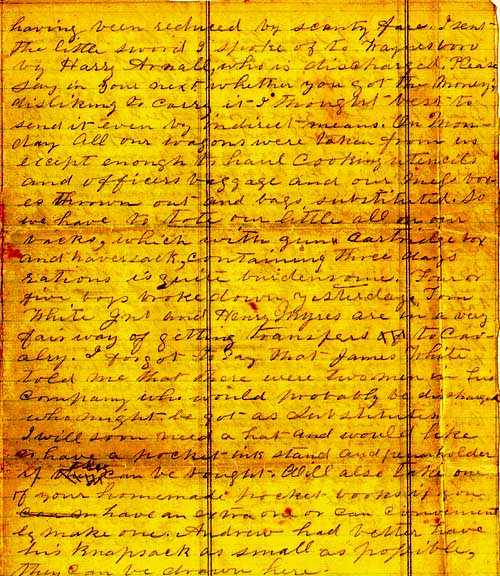 having been reduced by scanty fare. I sent
the little sword I spoke of to Waynesboro
by Harry Arnall, who is discharged. Please
say in your next whether you got the money,
disliking to carry it I thought best to
send it even by indirect means. On Mon-
day all our wagons were taken from us
except enough to haul cooking utencils
and officers baggage and our mess box-
es thrown out and bags substituted. So
we have to tote our little all on our
backs, which with guns cartridge box
and haversack, containing three days
rations is quite burdensome. Four or
five boys broke down yesterday. Tom
White Jnr and Henry Myres are in a very
fair way of getting transfers to Cav-
alry. I forgot to say that James White
told me that there were two men in his
company who would probably be discharged
who might be got as substitutes
I will soon need a hat and would like
to have a pocket ink stand and penholder
if they can be bought. Will also take one
of your homemade pocket books if you
have an extra one or can convenient
ly make one. Andrew had better have
his knapsack as small as possible,
they can be drawn here.